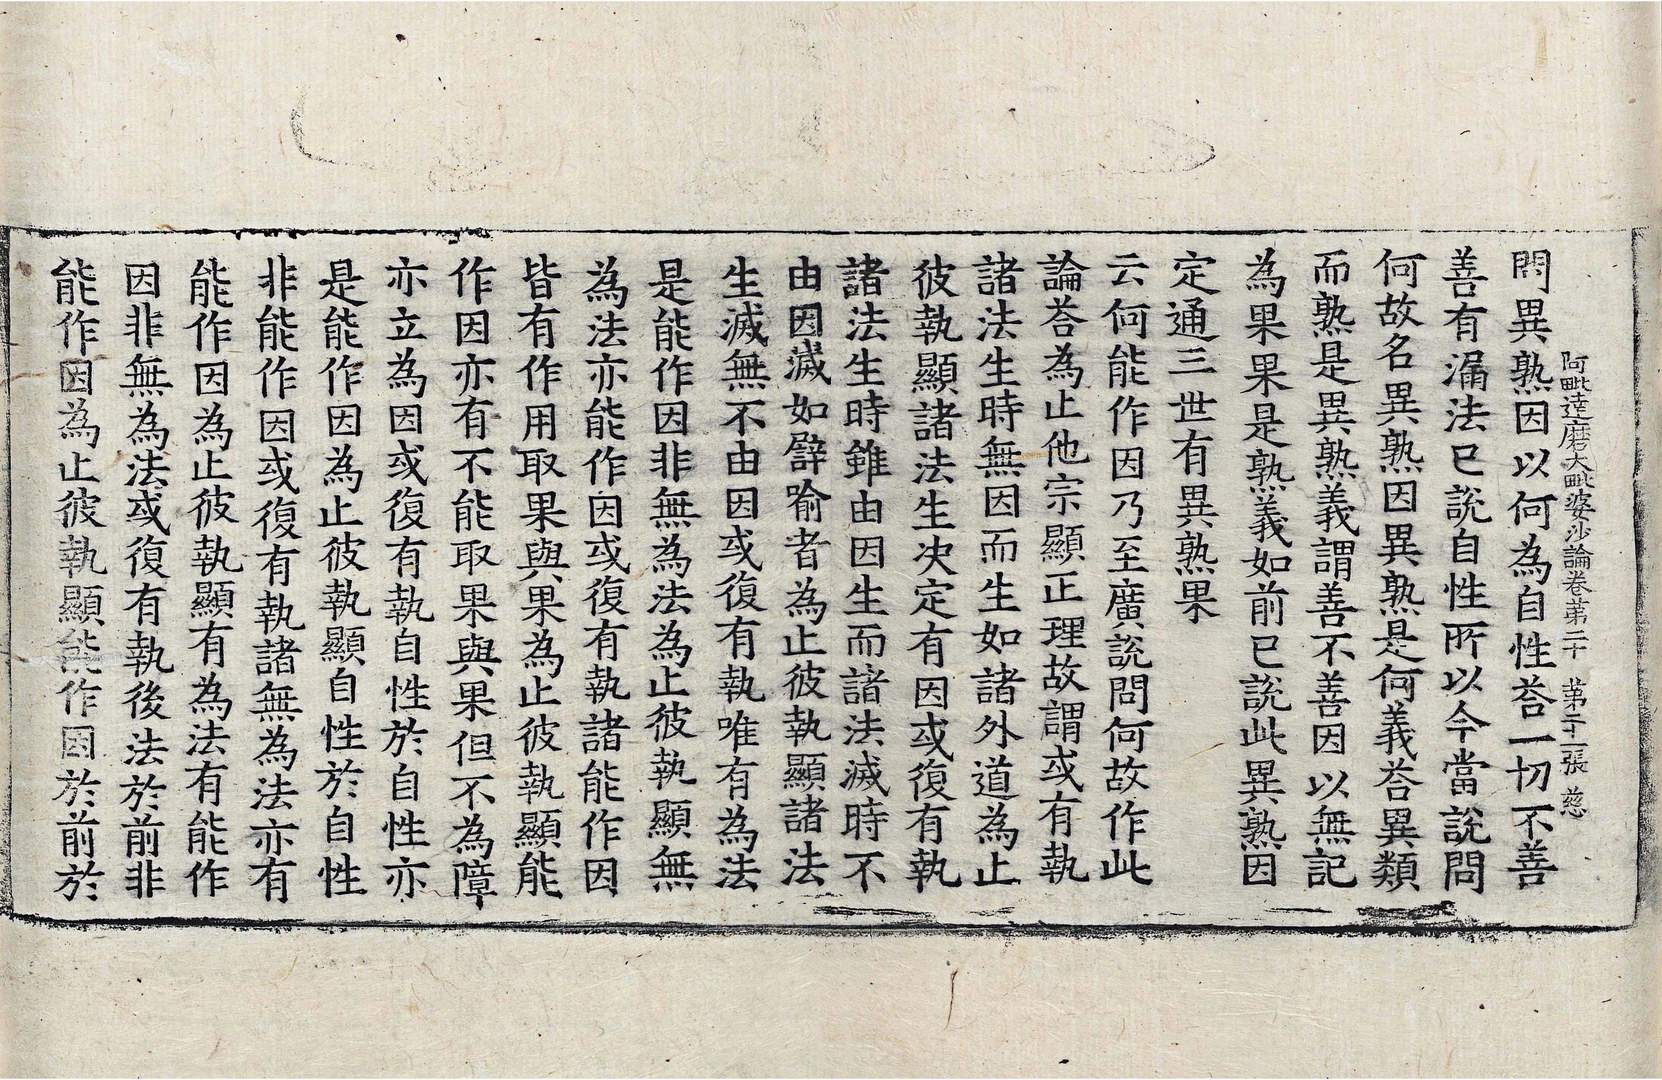 阿毗達磨大毗婆沙論卷第二十 第二十一張 慈
問異熟因以何為自性荅一切不善
善有漏法已說自性所以今當說問
何故名異熟因異熟是何義荅異類
而熟是異熟義謂善不善因以無記
為果果是熟義如前已說此異熟因
定通三世有異熟果
云何能作因乃至廣說問何故作此
論荅為止他宗顯正理故謂或有執
諸法生時無因而生如諸外道為止
彼執顯諸法生决定有因或復有執
諸法生時雖由因生而諸法滅時不
由因滅如譬喻者為止彼執顯諸法
生滅無不由因或復有執唯有為法
是能作因非無為法為止彼執顯無
為法亦能作因或復有執諸能作因
皆有作用取果與果為止彼執顯能
作因亦有不能取果與果但不為障
亦立為因或復有執自性於自性亦
是能作因為止彼執顯自性於自性
非能作因或復有執諸無為法亦有
能作因為止彼執顯有為法有能作
因非無為法或復有執後法於前非
能作因為止彼執顯能作因於前於